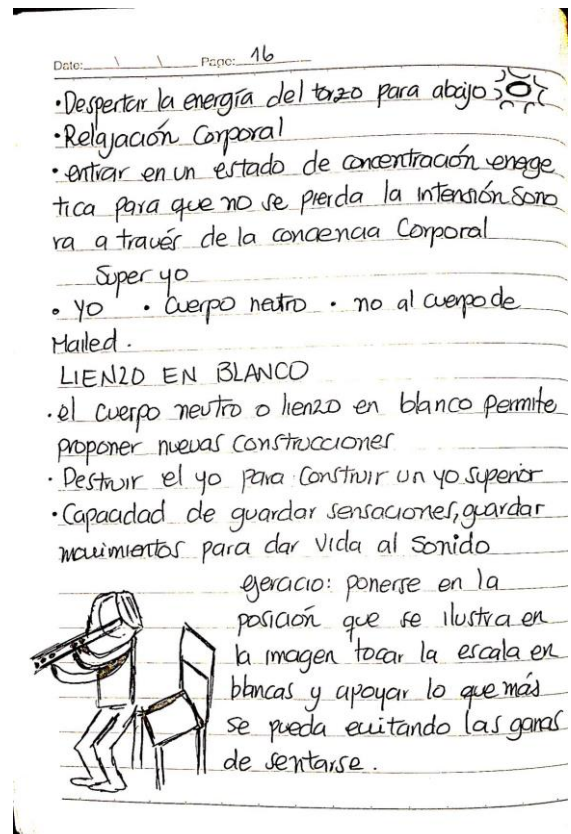 Date: \ \ Page: 16
•Despertar la energía del torzo para abajo
•Relajación Corporal
•entrar en un estado de concentración enege
tica para que no se pierda la intensión Sono
ra a través de la conciencia Corporal
Super yo
• yo • Cuerpo neutro • no al cuerpo de
Mailed.
LIENZO EN BLANCO
•el cuerpo neutro o lienzo en blanco permite
proponer nuevas construcciones
•Destruir el yo para construir un yo superior
•Capacidad de guardar sensaciones, guardar
movimientos para dar vida al sonido
ejercicio: ponerse en la
posición que se ilustra en
la imagen tocar la escala en
blancas y apoyar lo que más
se pueda evitando las ganas
de sentarse.